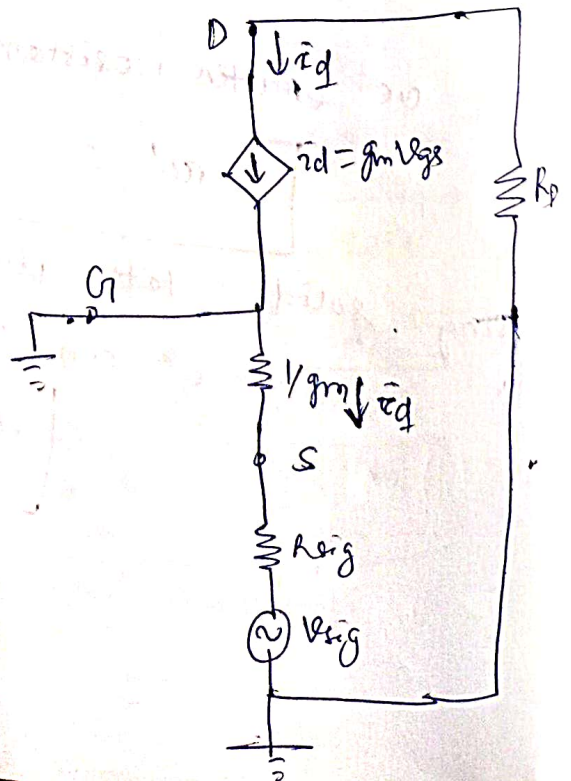 D
↓ id
id = gmVgs
RD
G
1/gm ↓ id
S
Rsig
Vsig